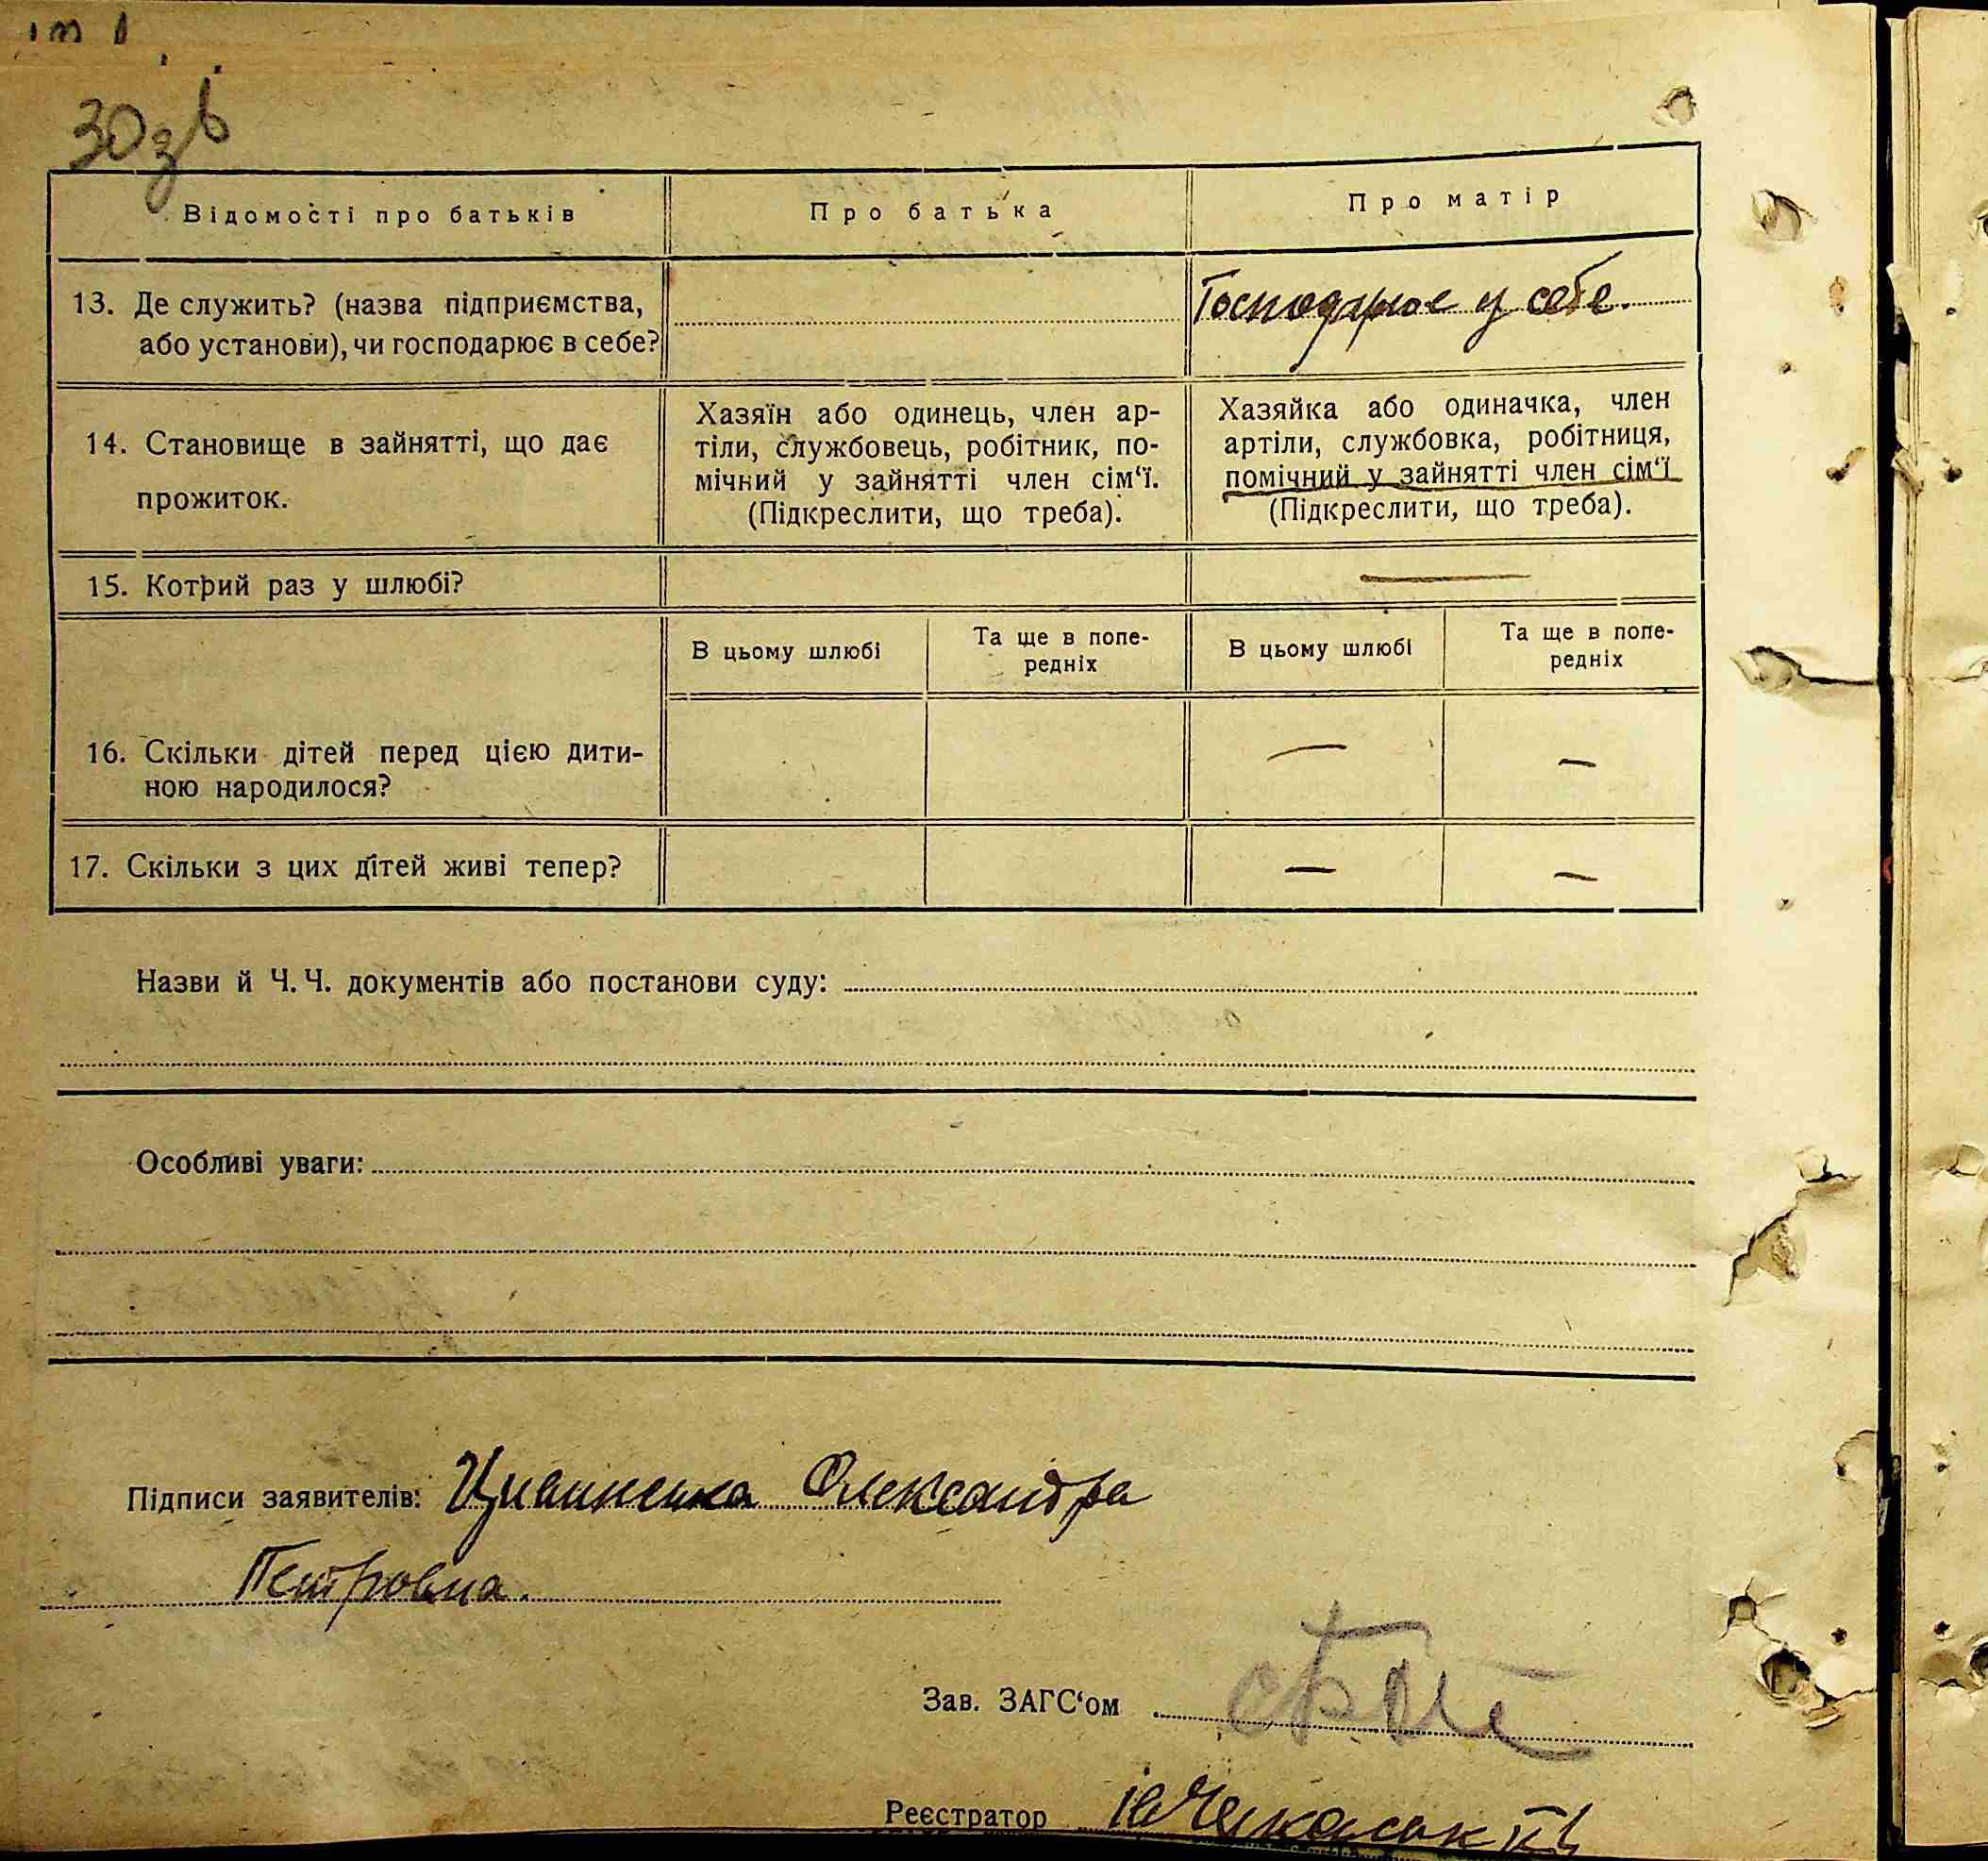 30 зв
Відомості про батьків
Про батька
Про матір
13. Де служить? (назва підприємства,
або установи), чи господарює в себе?
Господарює у себе.
14. Становище в зайнятті, що дає
прожиток.
Хазяїн або одинець, член ар-
тіли, службовець, робітник, по-
мічний у зайнятті член сім‘ї.
(Підкреслити, що треба).
Хазяйка або одиначка, член
артіли, службовка, робітниця,
помічний у зайнятті член сім‘ї
(Підкреслити, що треба).
15. Котрий раз у шлюбі?
—
В цьому шлюбі
Та ще в попе-
редніх
В цьому шлюбі
Та ще в попе-
редніх
16. Скільки дітей перед цією дити-
ною народилося?
— —
17. Скільки з цих дітей живі тепер?
— —
Назви й Ч. Ч. документів або постанови суду:
Особливі уваги:
Підписи заявителів: Олександра
Петровна.
Зав. ЗАГС‘ом
Реєстратор